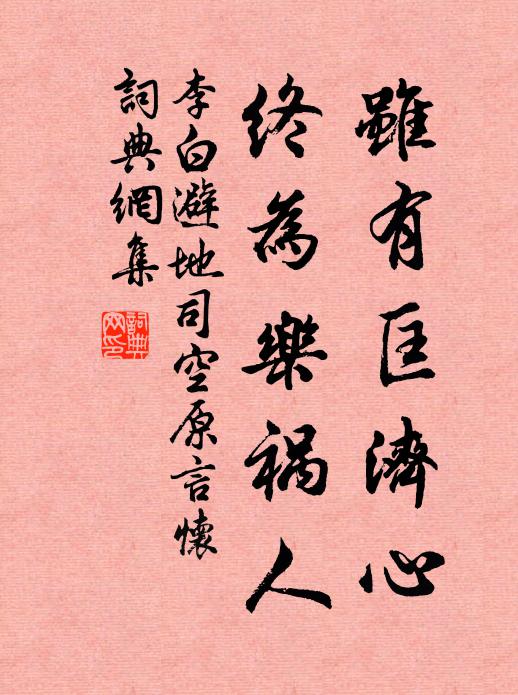 雖有匡濟心
終為樂禍人
李白避地司空原言懷
詞典網集
詞典網印